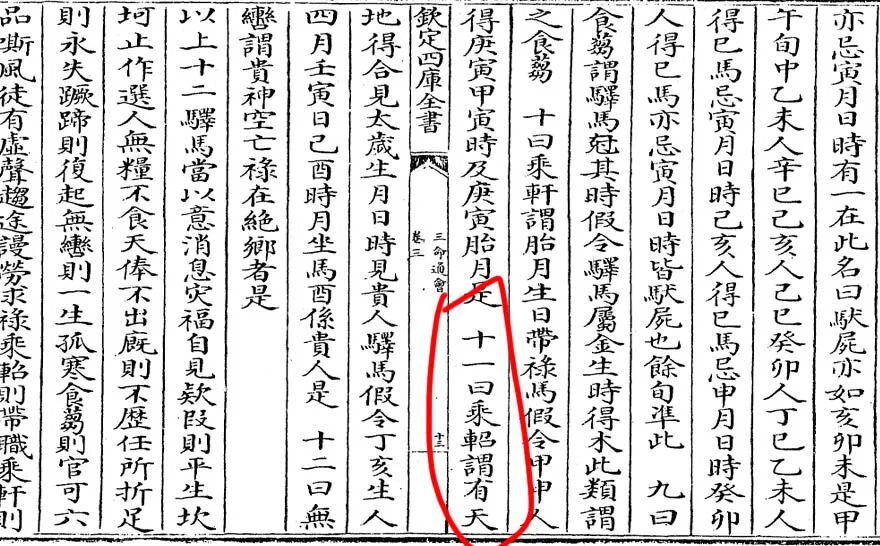 亦忌寅月日時有一在此名曰馱屍亦如亥卯未是甲
午旬中乙未人辛巳己亥人己巳癸卯人丁巳乙未人
得巳馬忌寅月日時己亥人得巳馬忌申月日時癸卯
人得巳馬亦忌寅月日時皆馱屍也餘旬準此 九曰
食蒭謂驛馬尅其時假令驛馬屬金生時得木此類謂
之食蒭 十曰乘軒謂胎月生日帶祿馬假令甲申人
得庚寅甲寅時及庚寅胎月是 十一曰乘軺謂有天
欽定四庫全書
三命通會
卷三
十三
地得合見太歲生月日時見貴人驛馬假令丁亥生人
四月壬寅日己酉時月坐馬酉係貴人是 十二曰無
轡謂貴神空亡祿在絶鄉者是
以上十二驛馬當以意消息灾福自見欵段則平生坎
坷止作選人無糧不食天俸不出廐則不歴任所折足
則永失蹶蹄則復起無轡則一生孤寒食蒭則官可六
品嘶風徒有虛聲趨途謾勞求祿乘軺則帶職乘軒則